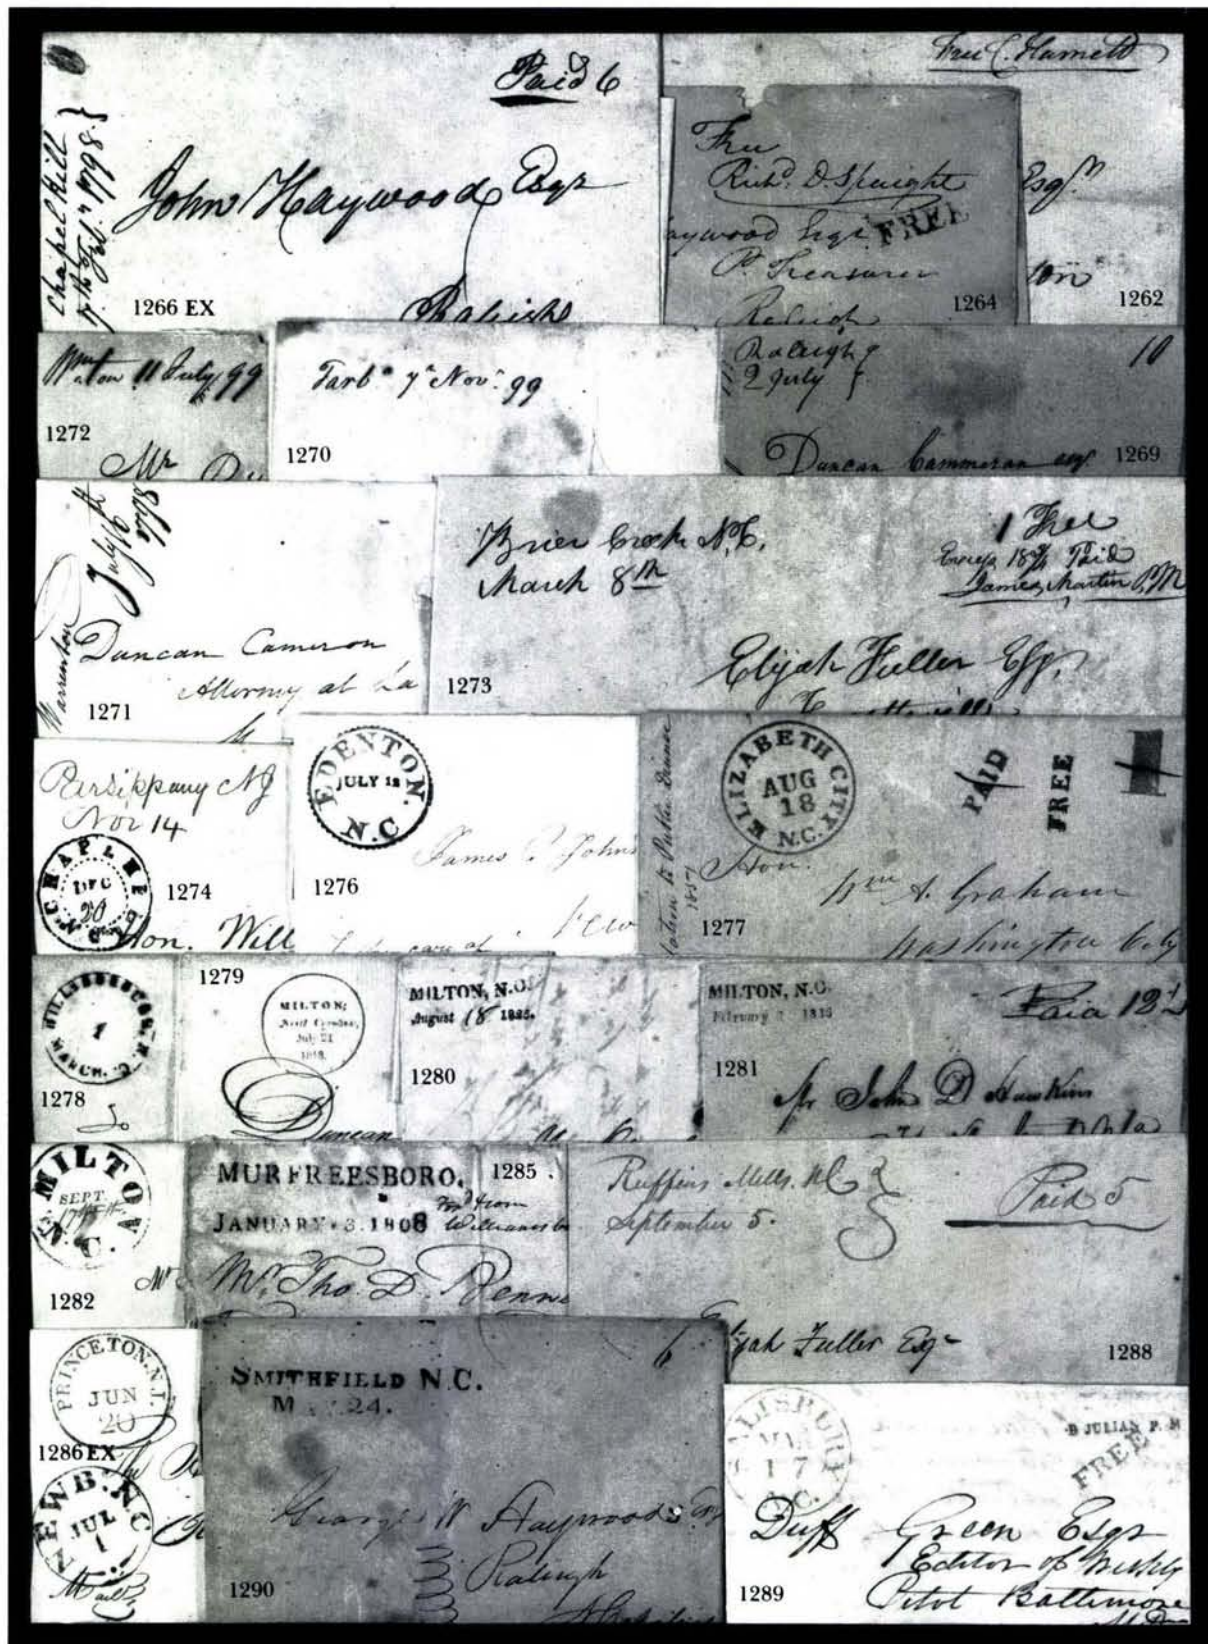 Paid 6
Chapel Hill
7th Feb. 1798.
John Haywood Esqr
Raleigh
1266 EX
Free
Richd. D. Spaight
FREE
aywood Esqr
P. Treasurer
Raleigh
1264
Esqr
ton
1262
11 July 99
1272
Mr
Tarbo 7th Novr. 99
1270
Raleigh
2 July
10
Duncan Cammeran esqr
1269
Warrenton
July 16th
Duncan Cameron
Attorney at La
1271
Brier Creek N.C.
March 8th
1 Free
Paid
James Martin P.M
Elijah Fuller Esq.
1273
Persippany NJ
Nov 14
CHAPL. HILL
DEC
20
1274
Hon. Will
EDENTON.
JULY 12
N.C
James C. Johns
care of
1276
ELIZABETH CITY
AUG
18
N.C.
PAID
FREE
Hon.
Wm A. Graham
Washington City
1277
HILLSBOROUGH, N.C.
1
MARCH.
1278
1279
MILTON;
North Carolina,
July 21
Duncan
MILTON, N.C.
August 18 1825.
1280
MILTON, N.C.
February
Paid 12½
1281
Mr John D Hawkins
MILTON
SEPT.
N.C.
1282
MURFREESBORO.
1285
JANUARY 3. 1808
from
Mr. Tho. D. Benne
Ruffins Mills. NC
September 5.
Paid 5
Elijah Fuller Esqr
1288
PRINCETON. N.J.
JUN
20
1286 EX
NEWB. N.C
JUL
1
SMITHFIELD N.C.
M 24.
6
George W Haywood
Raleigh
1290
SALISBURY
MAR
17
N.C.
B JULIAN P. M
FREE
Duff Green Esqr
Editor of Weekly
Pilot Baltimore
1289